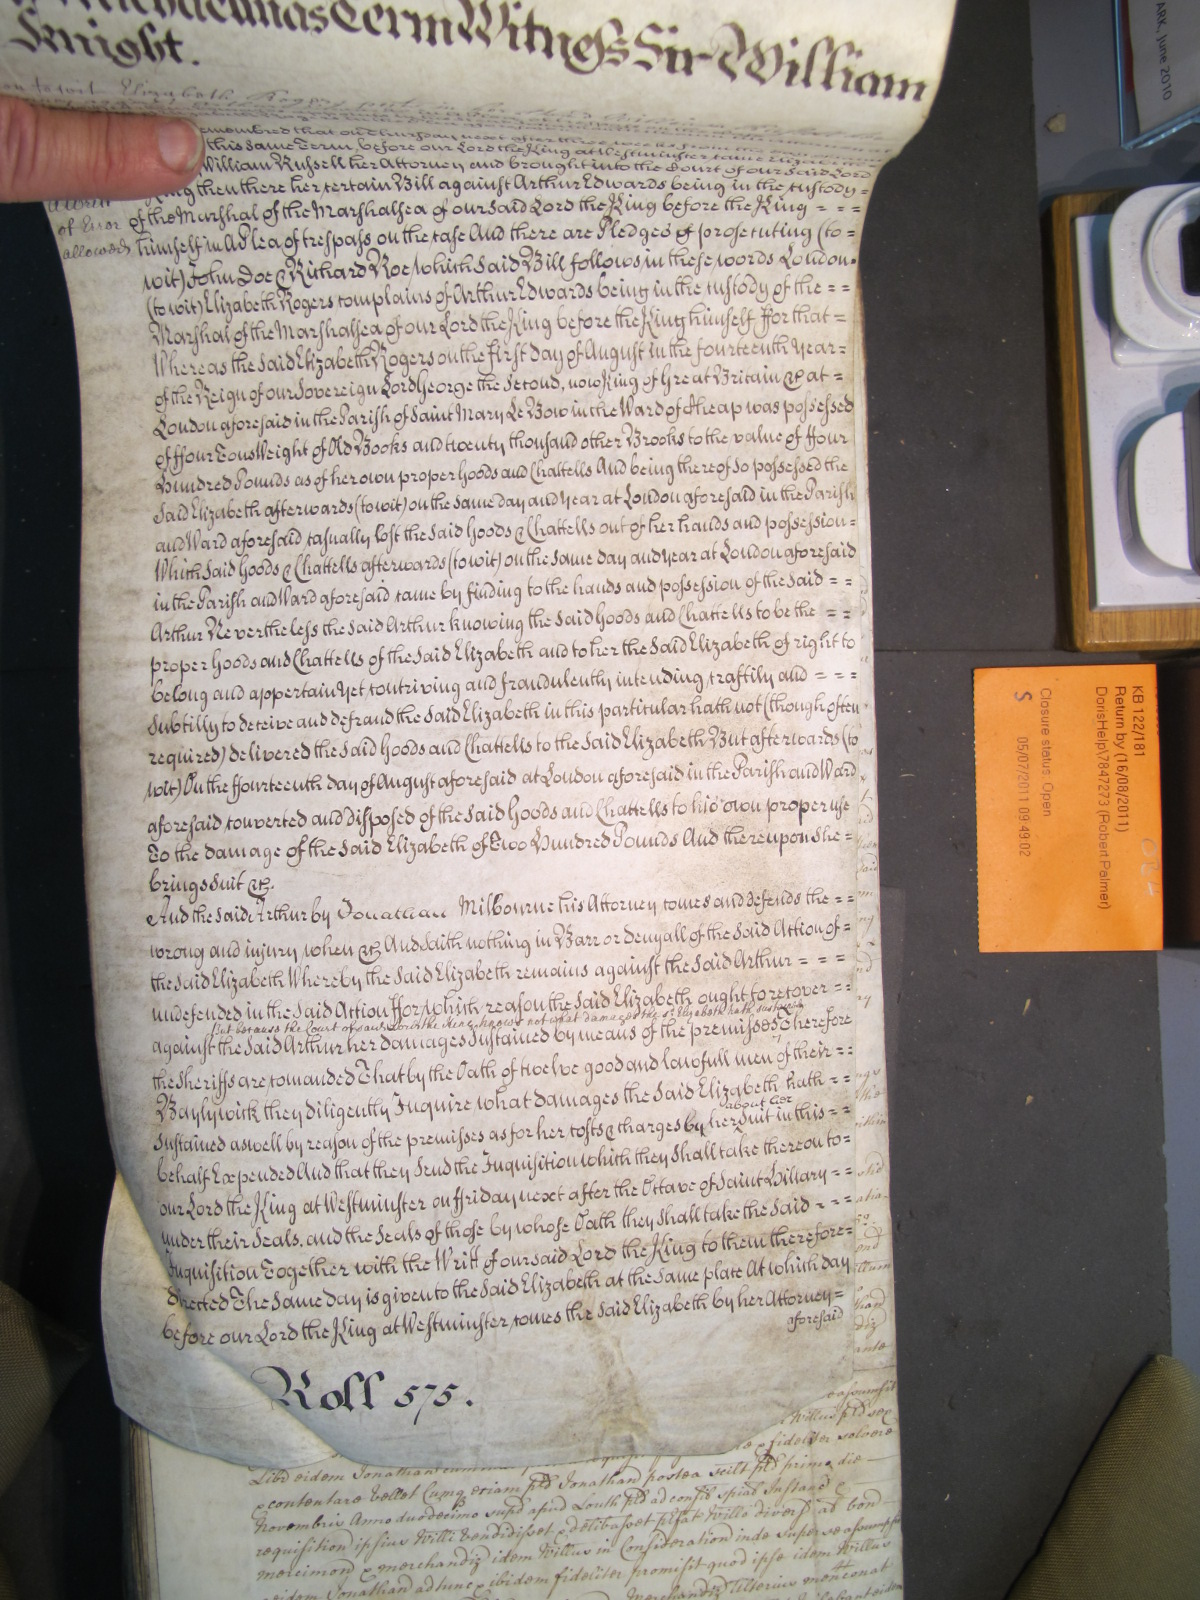 Michaelmas Term Witness Sir William
Knight.
to wit Elizabeth Rogers put in
remembered that on Thursday next after three weeks from
this same Term, before our Lord the King at Westminster came Elizabeth
William Russell her Attorney and brought into the Court of our Said Lord
King then there her certain Bill against Arthur Edwards being in the custody =
a Writ
of Error
allowed
of the Marshal of the Marshalsea of our Said Lord the King before the King = = =
himself in A Plea of trespass on the case And there are Pledges of prosecuting (to =
wit) John Doe & Richard Roe which Said Bill follows in these words London =
(to wit) Elizabeth Rogers complains of Arthur Edwards being in the custody of the = =
Marshal of the Marshalsea of our Lord the King before the King himself ffor that =
Whereas the Said Elizabeth Rogers on the first day of August in the fourteenth Year =
of the Reign of our Sovereign Lord George the Second, now King of Great Britain &c at =
London aforesaid in the Parish of Saint Mary Le Bow in the Ward of Cheap was possessed
of ffour Tons Weight of Old Books and twenty thousand other Brooks to the value of ffour
Hundred Pounds as of her own proper Goods and Chattells And being thereof so possessed the
Said Elizabeth afterwards (to wit) on the same day and Year at London aforesaid in the Parish
and Ward aforesaid casually lost the Said Goods & Chattells out of her hands and possession =
Which Said Goods & Chattells afterwards (to wit) on the same day and year at London aforesaid
in the Parish and Ward aforesaid came by finding to the hands and possession of the Said = =
Arthur Nevertheless the Said Arthur knowing the Said Goods and Chattells to be the = =
proper Goods and Chattells of the Said Elizabeth and to her the Said Elizabeth of right to
belong and appertain Yet contriving and fraudulently intending craftily and = = =
Subtilly to deceive and defraud the Said Elizabeth in this particular hath not (though often
required) delivered the Said Goods and Chattells to the Said Elizabeth But afterwards (to
wit) On the ffourteenth day of August aforesaid at London aforesaid in the Parish and Ward
aforesaid converted and disposed of the Said Goods and Chattells to his own proper use
To the damage of the Said Elizabeth of Two Hundred Pounds And thereupon She =
brings Suit &c.
And the Said Arthur by Jonathan Milbourne his Attorney comes and defends the = =
wrong and injury when &c And Saith nothing in Barr or denyall of the Said Action of =
the Said Elizabeth Whereby the Said Elizabeth remains against the Said Arthur = = =
undefended in the Said Action ffor which reason the Said Elizabeth ought to recover = =
But because the Court of said Lord the King knows not what damages the sd Elizabeth hath sustained
against the Said Arthur her damages Sustained by means of the premisses Therefore
the Sheriffs are comanded That by the Oath of twelve good and lawfull men of their = =
Baylywick they diligently Inquire what damages the Said Elizabeth hath = =
about her
Sustained aswell by reason of the premisses as for her costs & charges by her Suit in this = =
behalf Expended And that they Send the Inquisition which they Shall take thereon to =
our Lord the King at Westminster on ffriday next after the Octave of Saint Hillary = =
under their Seals. and the Seals of those by whose Oath they Shall take the Said = = =
Inquisition Together with the Writt of our said Lord the King to them therefore =
directed The Same day is given to the Said Elizabeth at the Same place At which day
before our Lord the King at Westminster, comes the Said Elizabeth by her Attorney =
aforesaid
Roll 575.
Libr eidem Jonathan
Novembris Anno duodecimo
requisition ipsius Willi vendidisset
eidem Jonathan ad tunc & ibidem fideliter promisit quod ipse idem Willus
ARK, June 2010
KB 122/181
Return by (16/08/2011)
DorisHelp\7847273 (Robert Palmer)
Closure status: Open
S 05/07/2011 09:49:02